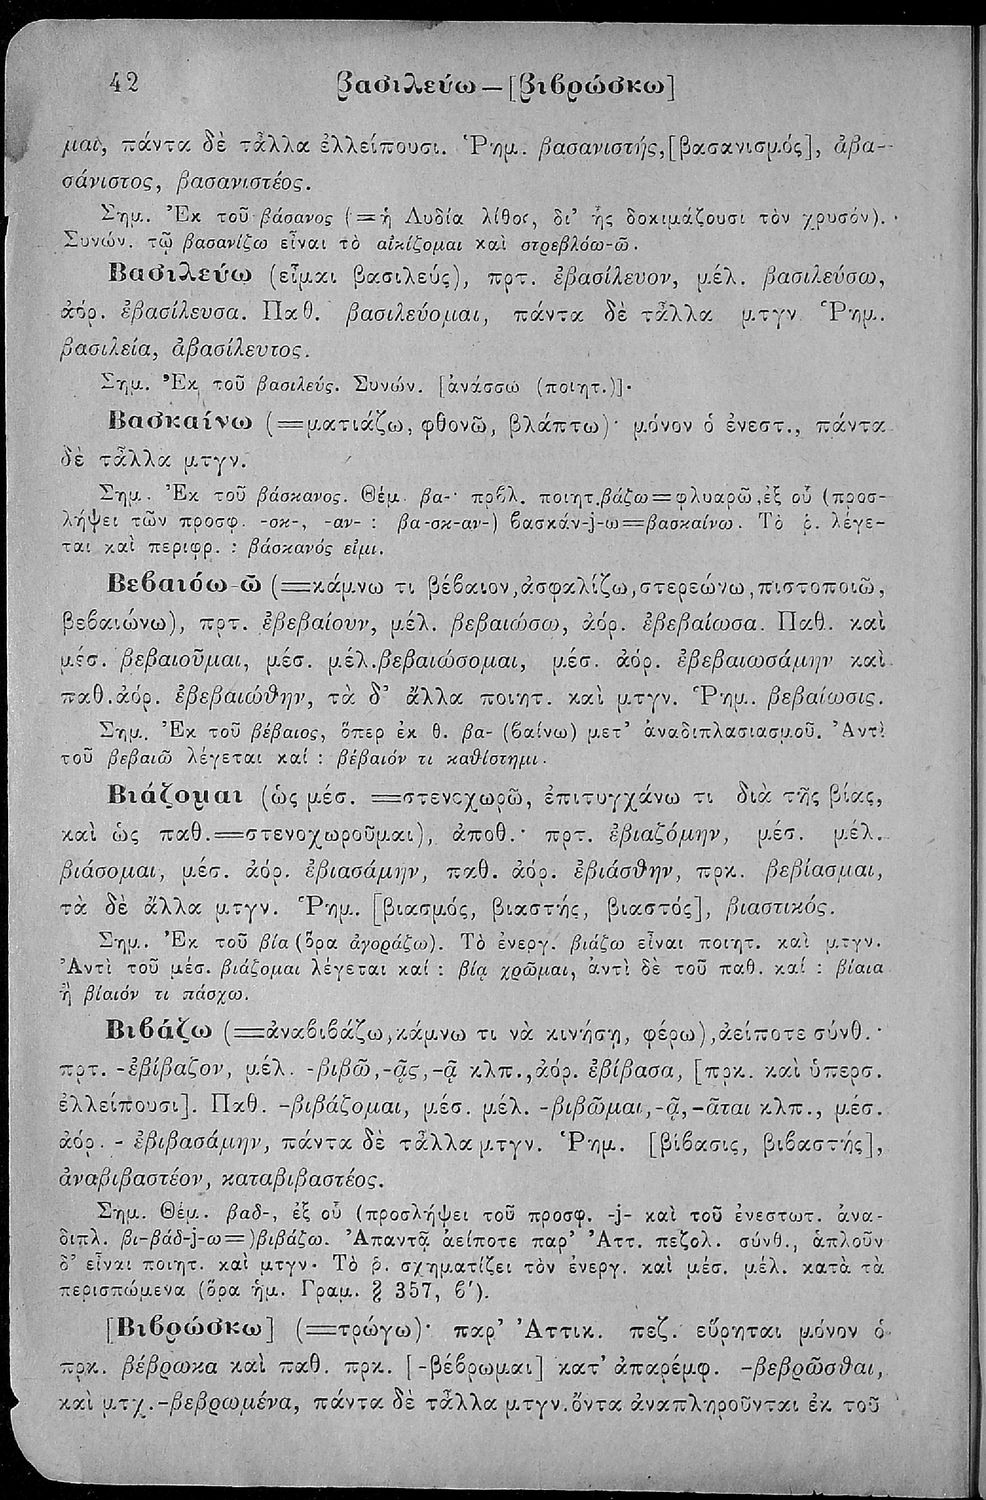 42 βασιλεύω — [βιβρώσκω]
μαι, πάντα δὲ τἆλλα ἐλλείπουσι. Ῥημ. βασανιστής, [βασανισμός], ἀβα-
σάνιστος, βασανιστέος.
Σημ. Ἐκ τοῦ βάσανος (=ἡ Λυδία λίθος, δι’ ἧς δοκιμάζουσι τὸν χρυσόν).
Συνών. τῷ βασανίζω εἶναι τὸ αἰκίζομαι καὶ στρεβλόω-ῶ.
Βασιλεύω (εἶμαι βασιλεύς), πρτ. ἐβασίλευον, μέλ. βασιλεύσω,
ἀόρ. ἐβασίλευσα. Παθ. βασιλεύομαι, πάντα δὲ τἆλλα μτγν. Ῥημ.
βασιλεία, ἀβασίλευτος.
Σημ. Ἐκ τοῦ βασιλεύς. Συνών. [ἀνάσσω (ποιητ.)]·
Βασκαίνω (=ματιάζω, φθονῶ, βλάπτω)· μόνον ὁ ἐνεστ., πάντα
δὲ τἆλλα μτγν.
Σημ. Ἐκ τοῦ βάσκανος. Θέμ. βα-· πρβλ. ποιητ. βάζω=φλυαρῶ, ἐξ οὗ (προσ-
λήψει τῶν προσφ. -σκ-, -αν- : βα-σκ-αν-) βασκάν-j-ω=βασκαίνω. Τὸ ῥ. λέγε-
ται καὶ περιφρ. : βάσκανός εἰμι.
Βεβαιόω-ῶ (=κάμνω τι βέβαιον, ἀσφαλίζω, στερεώνω, πιστοποιῶ,
βεβαιώνω), πρτ. ἐβεβαίουν, μέλ. βεβαιώσω, ἀόρ. ἐβεβαίωσα. Παθ. καὶ
μέσ. βεβαιοῦμαι, μέσ. μέλ. βεβαιώσομαι, μέσ. ἀόρ. ἐβεβαιωσάμην καὶ
παθ. ἀόρ. ἐβεβαιώθην, τὰ δ’ ἄλλα ποιητ. καὶ μτγν. Ῥημ. βεβαίωσις.
Σημ. Ἐκ τοῦ βέβαιος, ὅπερ ἐκ θ. βα- (βαίνω) μετ’ ἀναδιπλασιασμοῦ. Ἀντὶ
τοῦ βεβαιῶ λέγεται καί : βέβαιόν τι καθίστημι.
Βιάζομαι (ὡς μέσ. =στενοχωρῶ, ἐπιτυγχάνω τι διὰ τῆς βίας,
καὶ ὡς παθ.=στενοχωροῦμαι), ἀποθ.· πρτ. ἐβιαζόμην, μέσ. μέλ.
βιάσομαι, μέσ. ἀόρ. ἐβιασάμην, παθ. ἀόρ. ἐβιάσθην, πρκ. βεβίασμαι,
τὰ δὲ ἄλλα μτγν. Ῥημ. [βιασμός, βιαστής, βιαστός], βιαστικός.
Σημ. Ἐκ τοῦ βία (ὅρα ἀγοράζω). Τὸ ἐνεργ. βιάζω εἶναι ποιητ. καὶ μτγν.
Ἀντὶ τοῦ μέσ. βιάζομαι λέγεται καί : βίᾳ χρῶμαι, ἀντὶ δὲ τοῦ παθ. καί : βίαια
ἢ βίαιόν τι πάσχω.
Βιβάζω (=ἀναβιβάζω, κάμνω τι νὰ κινήσῃ, φέρω), ἀείποτε σύνθ.·
πρτ. -ἐβίβαζον, μέλ. -βιβῶ, -ᾷς, -ᾷ κλπ., ἀόρ. ἐβίβασα, [πρκ. καὶ ὑπερσ.
ἐλλείπουσι]. Παθ. -βιβάζομαι, μέσ. μέλ. -βιβῶμαι, -ᾷ, -ᾶται κλπ., μέσ.
ἀόρ. -ἐβιβασάμην, πάντα δὲ τἆλλα μτγν. Ῥημ. [βίβασις, βιβαστής],
ἀναβιβαστέον, καταβιβαστέος.
Σημ. Θέμ. βαδ-, ἐξ οὗ (προσλήψει τοῦ προσφ. -j- καὶ τοῦ ἐνεστωτ. ἀνα-
διπλ. βι-βάδ-j-ω=)βιβάζω. Ἀπαντᾷ ἀείποτε παρ’ Ἀττ. πεζολ. σύνθ., ἁπλοῦν
δ’ εἶναι ποιητ. καὶ μτγν· Τὸ ῥ. σχηματίζει τὸν ἐνεργ. καὶ μέσ. μέλ. κατὰ τὰ
περισπώμενα (ὅρα ἡμ. Γραμ. § 357, β').
[Βιβρώσκω] (=τρώγω)· παρ’ Ἀττικ. πεζ. εὕρηται μόνον ὁ
πρκ. βέβρωκα καὶ παθ. πρκ. [-βέβρωμαι] κατ’ ἀπαρέμφ. -βεβρῶσθαι,
καὶ μτχ. -βεβρωμένα, πάντα δὲ τἆλλα μτγν. ὄντα ἀναπληροῦνται ἐκ τοῦ